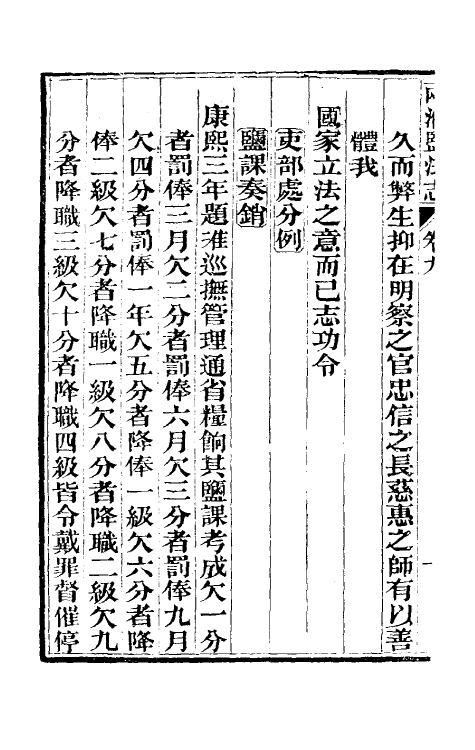 久而弊生抑在明察之官忠信之長慈惠之師有以善
體我
國家立法之意而已志功令
吏部處分例
鹽課奏銷
康熙三年題准巡撫管理通省糧餉其鹽課考成欠一分
者罰俸三月欠二分者罰俸六月欠三分者罰俸九月
欠四分者罰俸一年欠五分者降俸一級欠六分者降
俸二級欠七分者降職一級欠八分者降職二級欠九
分者降職三級欠十分者降職四級皆令戴罪督催停